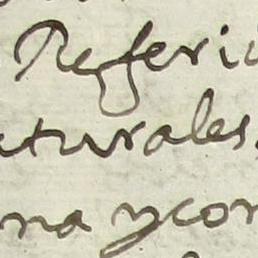 Referi
aturales.
na ycon